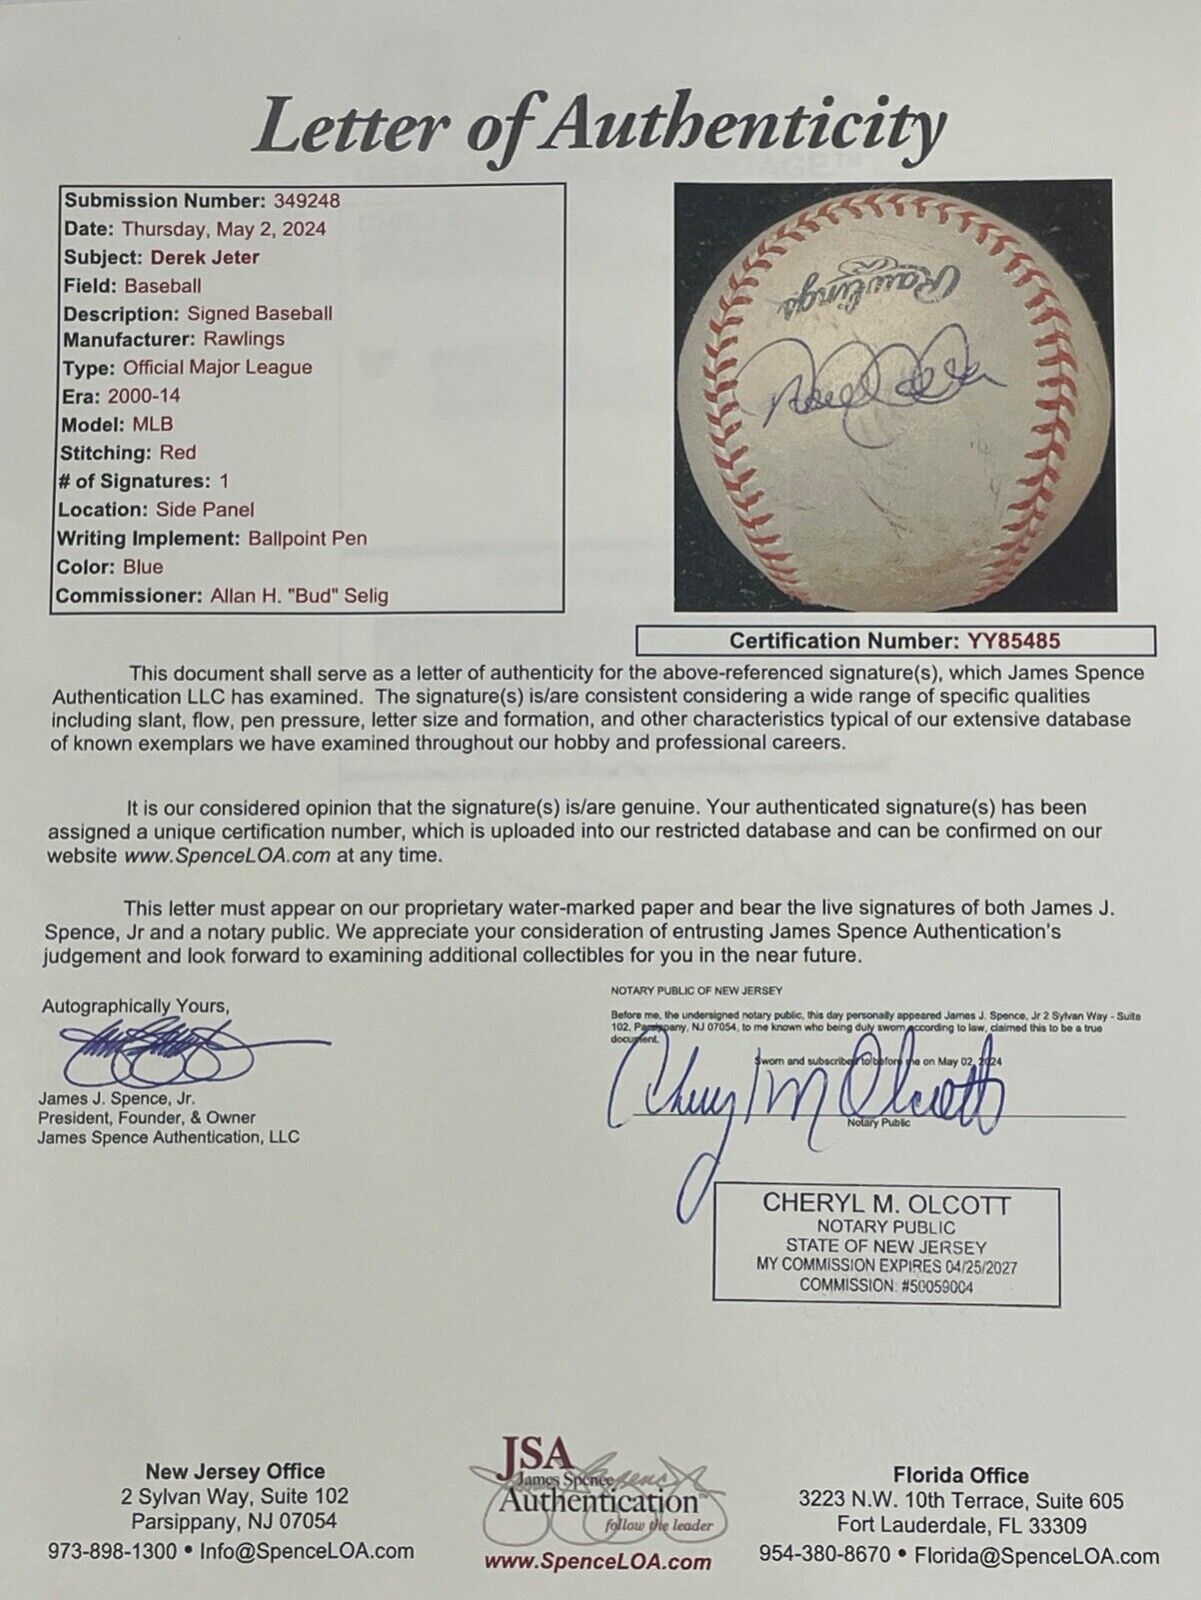 Letter of Authenticity
Submission Number: 349248
Date: Thursday, May 2, 2024
Subject: Derek Jeter
Field: Baseball
Description: Signed Baseball
Manufacturer: Rawlings
Type: Official Major League
Era: 2000-14
Model: MLB
Stitching: Red
# of Signatures: 1
Location: Side Panel
Writing Implement: Ballpoint Pen
Color: Blue
Commissioner: Allan H. "Bud" Selig
Rawlings
Derek Jeter
Certification Number: YY85485
This document shall serve as a letter of authenticity for the above-referenced signature(s), which James Spence
Authentication LLC has examined. The signature(s) is/are consistent considering a wide range of specific qualities
including slant, flow, pen pressure, letter size and formation, and other characteristics typical of our extensive database
of known exemplars we have examined throughout our hobby and professional careers.
It is our considered opinion that the signature(s) is/are genuine. Your authenticated signature(s) has been
assigned a unique certification number, which is uploaded into our restricted database and can be confirmed on our
website www.SpenceLOA.com at any time.
This letter must appear on our proprietary water-marked paper and bear the live signatures of both James J.
Spence, Jr and a notary public. We appreciate your consideration of entrusting James Spence Authentication's
judgement and look forward to examining additional collectibles for you in the near future.
Autographically Yours,
James J. Spence, Jr.
President, Founder, & Owner
James Spence Authentication, LLC
NOTARY PUBLIC OF NEW JERSEY
Before me, the undersigned notary public, this day personally appeared James J. Spence, Jr 2 Sylvan Way - Suite
102, Parsippany, NJ 07054, to me known who being duly sworn according to law, claimed this to be a true
document.
Sworn and subscribed to before me on May 02, 2024
Cheryl M Olcott
Notary Public
CHERYL M. OLCOTT
NOTARY PUBLIC
STATE OF NEW JERSEY
MY COMMISSION EXPIRES 04/25/2027
COMMISSION: #50059004
New Jersey Office
2 Sylvan Way, Suite 102
Parsippany, NJ 07054
973-898-1300 • Info@SpenceLOA.com
JSA
James Spence
Authentication™
follow the leader
www.SpenceLOA.com
Florida Office
3223 N.W. 10th Terrace, Suite 605
Fort Lauderdale, FL 33309
954-380-8670 • Florida@SpenceLOA.com